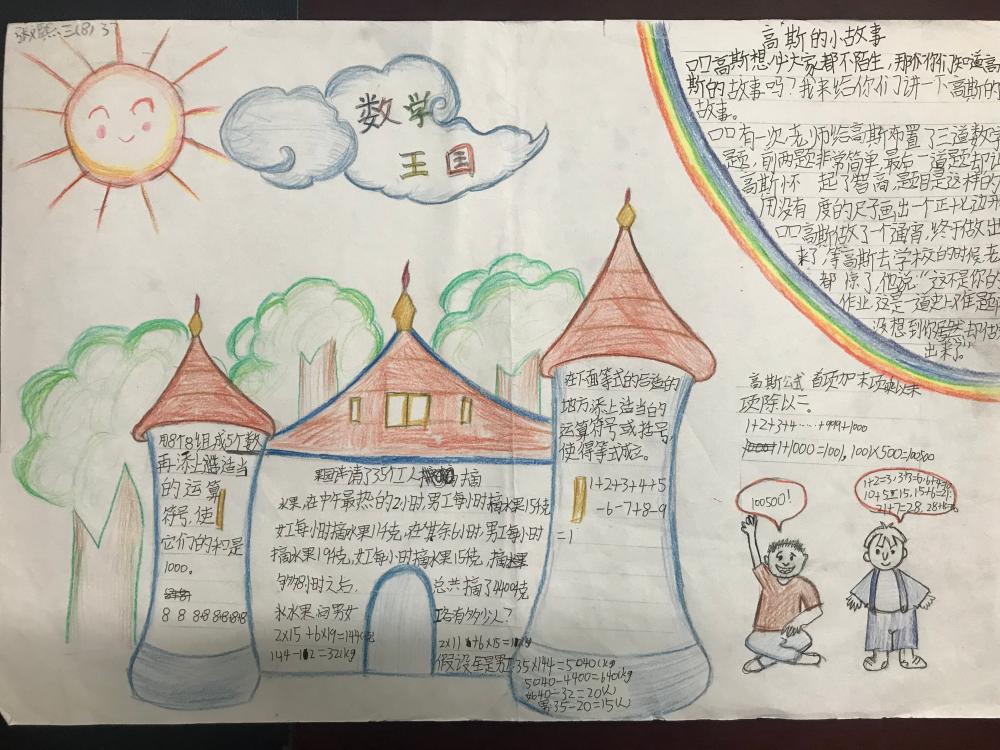 三(8) 37
数学
王国
高斯的小故事
口口高斯想必大家都不陌生,那你们知道高
斯的故事吗?我来给你们讲一下高斯的
故事。
口口有一次老师给高斯布置了三道数学
题,前两题非常简单,最后一道题却让
高斯怀 起了智商,题目是这样的
用没有 度的尺子画出一个正十七边形
口口高斯做了一个通宵,终于做出
来了,等高斯去学校的时候,老
都惊了,他说:“这不是你的
作业,这是一道史上难题
没想到你居然却做
出来了。”
高斯公式 首项加末项乘以末
项除以二。
1+2+3+4……+999+1000
1+1000=1001, 1001×500=
100500!
1+2=3,3+3=6,6+4=10
10+5=15,15+6=21,
21+7=28,
用8个8组成5个数
再添上适当
的运算
符号,使
它们的和是
1000。
8 8 8 8 8 8 8 8
果园声请了35个工人 摘
水果,在中午最热的2小时,男工每小时摘水果15千克
女工每小时摘水果11千克,在其余6小时,男工每小时
摘水果19千克,女工每小时摘水果15千克,摘水果
8小时之后, 总共摘了4400千克
水果,问男女 各有多少人?
2×15+6×19=144千克
2×11+6×15=112kg
144-112=32(kg
假设全是男工35×144=5040(kg
5040-4400=640(kg
640÷32=20(人
男:35-20=15(人
在下面等式的合适的
地方添上适当的
运算符号或括号,
使得等式成立。
1+2+3+4+5
-6-7+8-9
=1